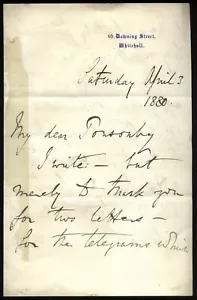 10, Downing Street,
Whitehall.
Saturday April 3
1880.
My dear Ponsonby
I write – but
merely to thank you
for two letters –
for the telegrams which